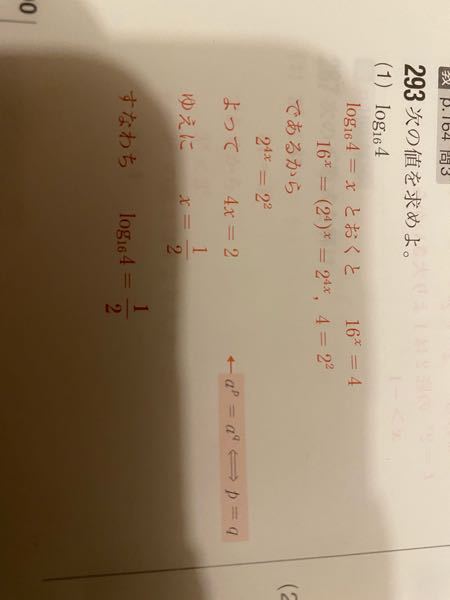 教 p.164 問3
293 次の値を求めよ。
(1) log₁₆4
log₁₆4 = x とおくと 16ˣ = 4
16ˣ = (2⁴)ˣ = 2⁴ˣ, 4 = 2²
であるから
2⁴ˣ = 2²
よって 4x = 2 ← aᵖ = a^q ⟺ p = q
ゆえに x = 1/2
すなわち log₁₆4 = 1/2
(2
00